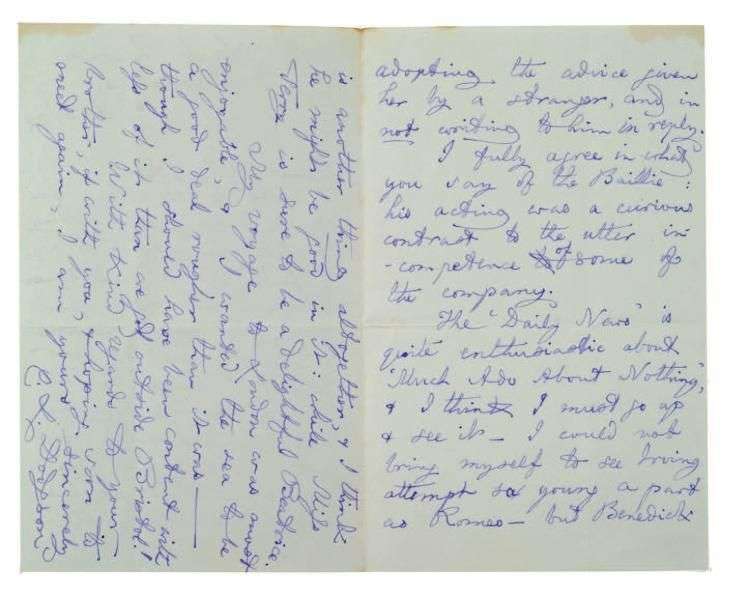 adopting the advice given
her by a stranger, and in
not writing to him in reply.
I fully agree in what
you say of the Baillie:
his acting was a curious
contrast to the utter in-
-competence of some of
the company.
The "Daily News" is
quite enthusiastic about
"Much Ado About Nothing",
& I think I must go up
& see it — I could not
bring myself to see Irving
attempt so young a part
as Romeo — but Benedick
is another thing altogether, & I think
he might be good in it: while Miss
Terry is sure to be a delightful Beatrice.
My voyage to London was most
enjoyable, & I wanted the sea to be
a good deal rougher than it was —
though I should have been content with
less of it than we got outside Bristol!
With kind regards to your
brother, if with you, & hoping soon to
meet again, I am yours sincerely
C. L. Dodgson